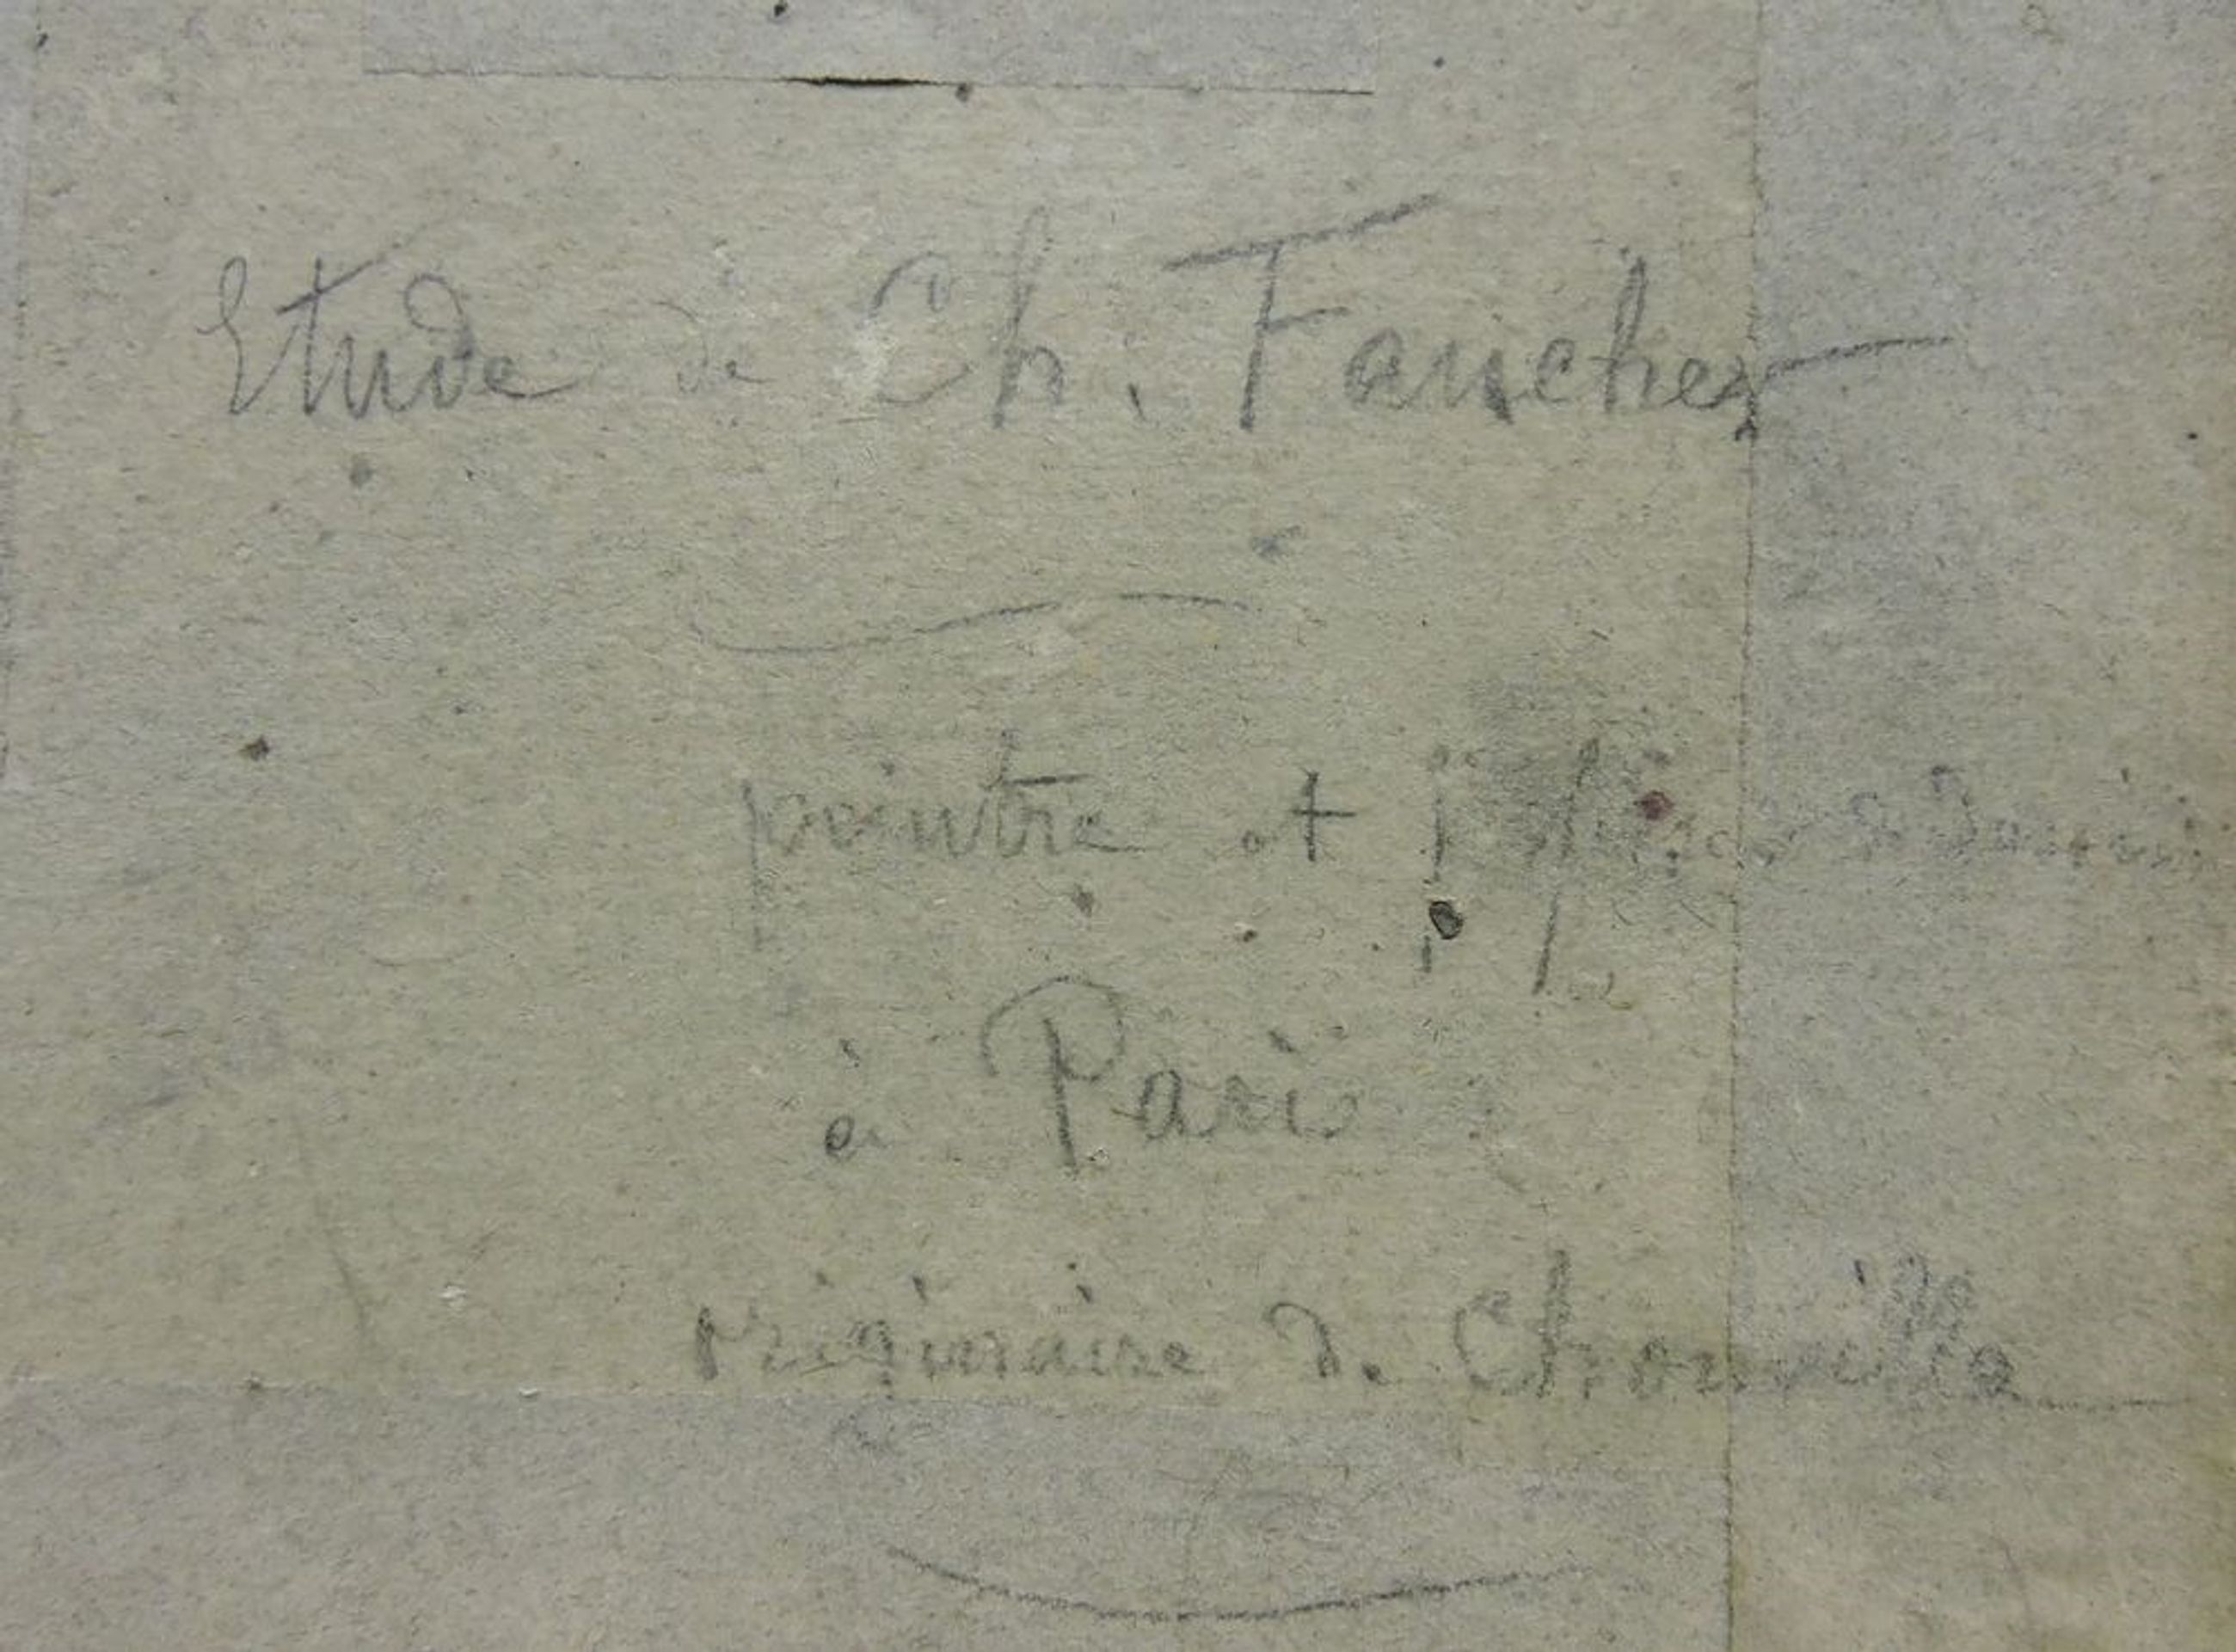 Etude de Ch. Faucher
peintre et professeur de Dessin
à Paris
originaire de Chouville